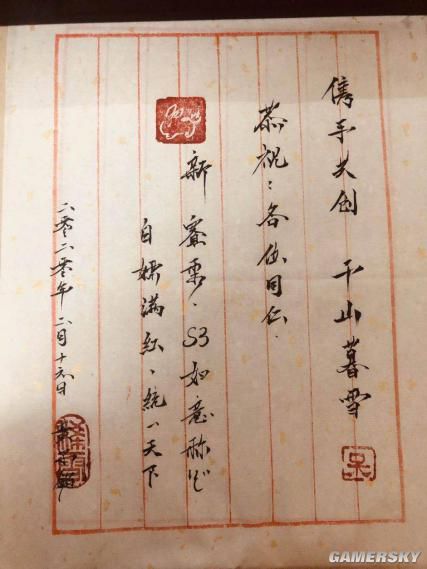 儁手共创 千山暮雪
恭祝：各位同仁.
新赛季.S3如意称心
满红、统一天下
二零二零年 二月十六日
GAMERSKY